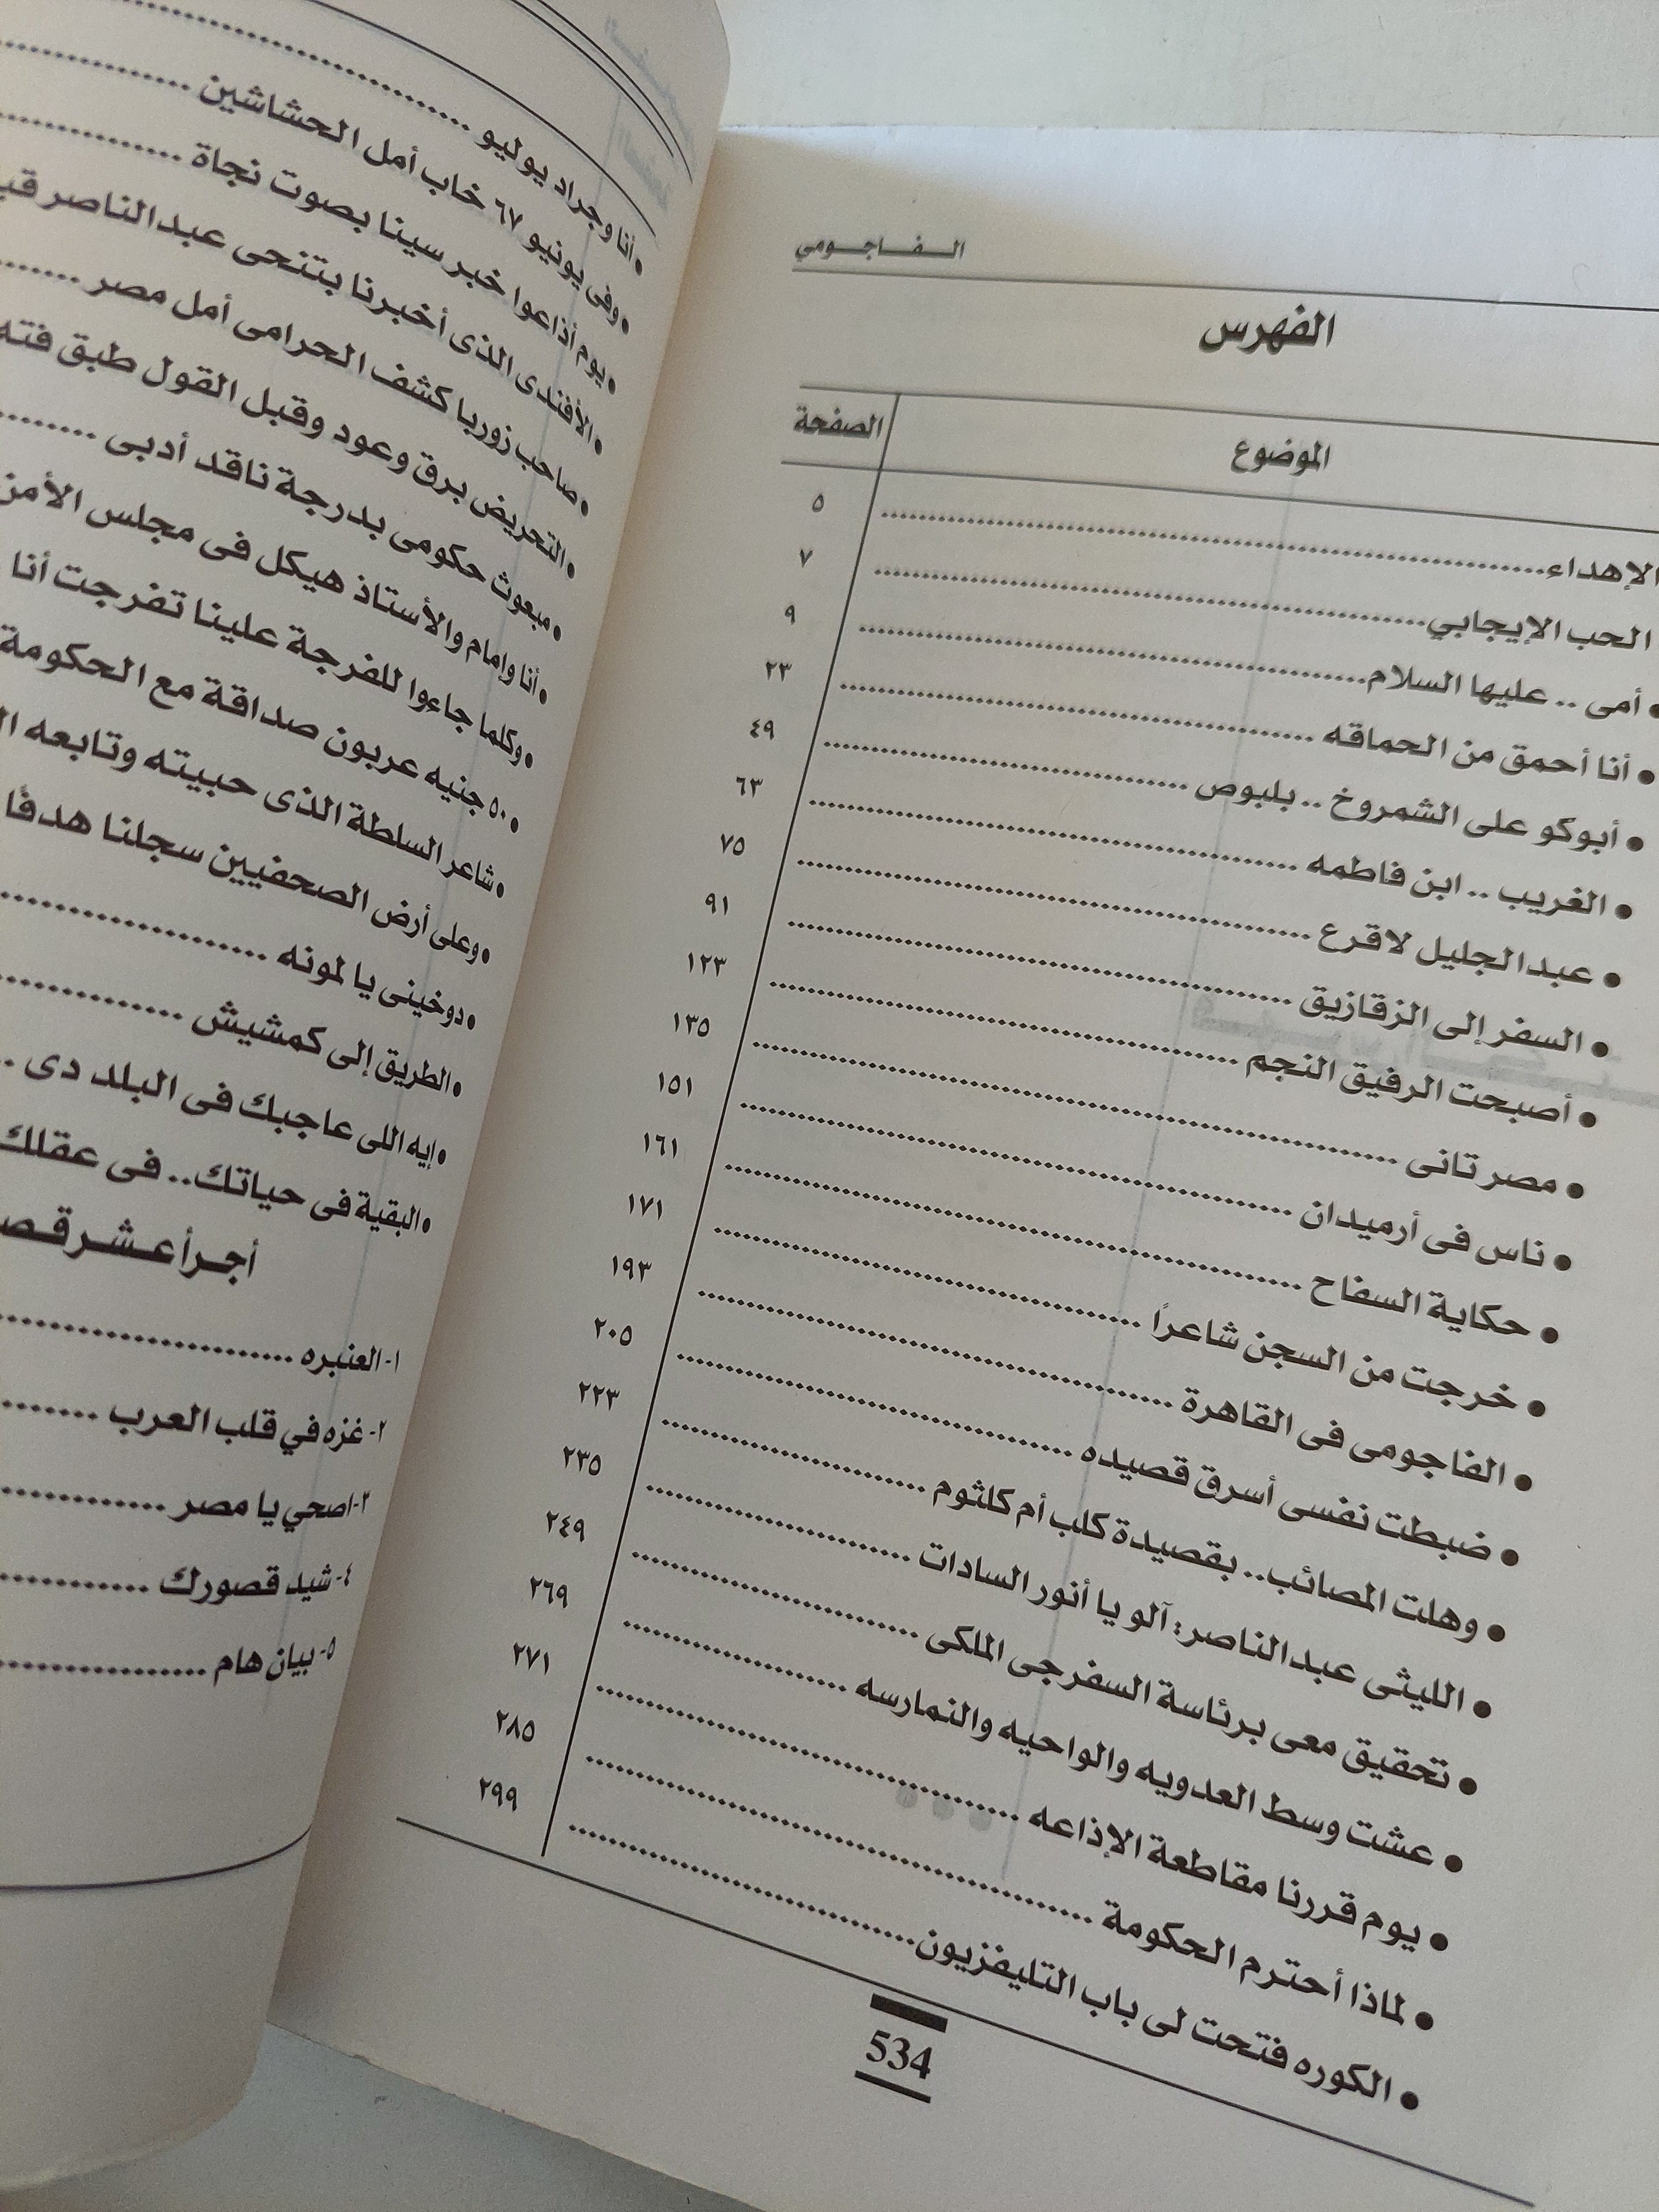 الـفـاجـومي
الفهرس
الموضوع الصفحة
الإهداء ٥
الحب الإيجابي ٧
• أمى .. عليها السلام ٩
• أنا أحمق من الحماقه ٢٣
• أبوكو على الشمروخ .. بلبوص ٤٩
• الغريب .. ابن فاطمه ٦٣
• عبدالجليل لاقرع ٧٥
• السفر إلى الزقازيق ٩١
• أصبحت الرفيق النجم ١٢٣
• مصر تانى ١٣٥
• ناس فى أرميدان ١٥١
• حكاية السفاح ١٦١
• خرجت من السجن شاعراً ١٧١
• الفاجومى فى القاهرة ١٩٣
• ضبطت نفسى أسرق قصيده ٢٠٥
• وهلت المصائب.. بقصيدة كلب أم كلثوم ٢٢٣
• الليثى عبدالناصر: آلو يا أنور السادات ٢٣٥
• تحقيق معى برئاسة السفرجى الملكى ٢٤٩
• عشت وسط العدويه والواحيه والنمارسه ٢٦٩
• يوم قررنا مقاطعة الإذاعه ٢٧١
• لماذا أحترم الحكومة ٢٨٥
• الكوره فتحت لى باب التليفزيون ٢٩٩
534
• أنا وجراد يوليو
• وفى يونيو ٦٧ خاب أمل الحشاشين
• يوم أذاعوا خبر سينا بصوت نجاة
• الأفندى الذى أخبرنا بتنحى عبدالناصر
• صاحب زوربا كشف الحرامى أمل مصر
• التحريض برق وعود وقبل القول طبق فته
• مبعوث حكومى بدرجة ناقد أدبى
• أنا وإمام والأستاذ هيكل فى مجلس الأمن
• وكلما جاءوا للفرجة علينا تفرجت أنا
• ٥٠ جنيه عربون صداقة مع الحكومة
• شاعر السلطة الذى حبيته وتابعه
• وعلى أرض الصحفيين سجلنا هدفًا
• دوخينى يا لمونه
• الطريق إلى كمشيش
• إيه اللى عاجبك فى البلد دى ..
• البقية فى حياتك.. فى عقلك
أجرأ عـشـر
١- العنبره
٢- غزه في قلب العرب
٣- اصحي يا مصر
٤- شيد قصورك
٥- بيان هام